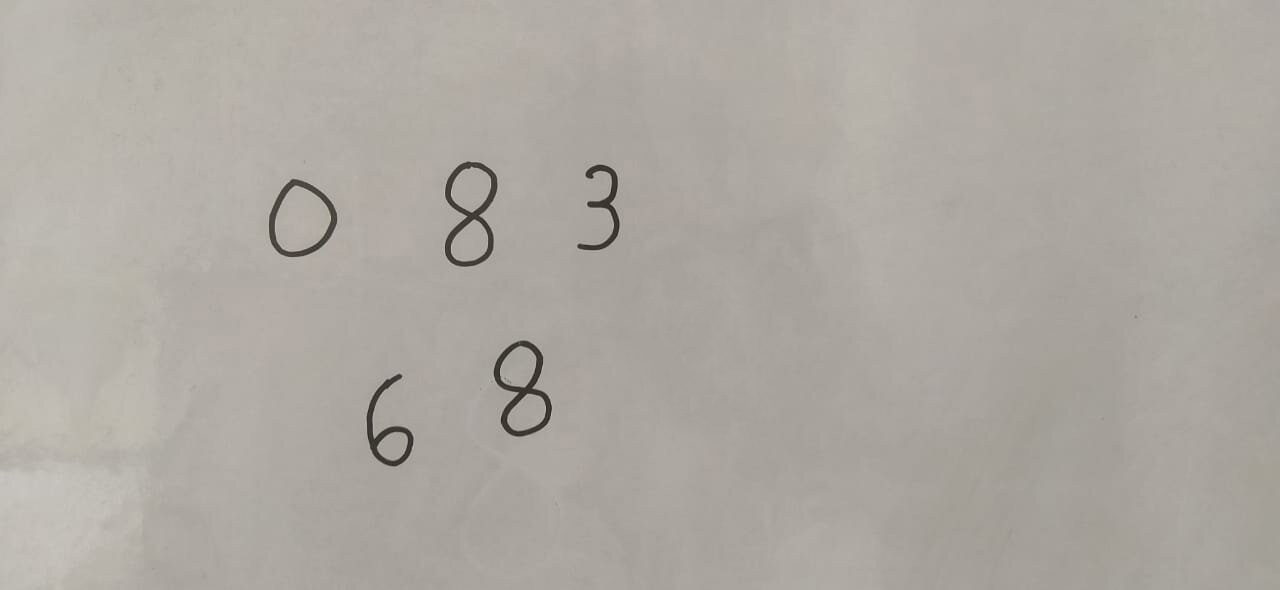 0 8 3
6 8